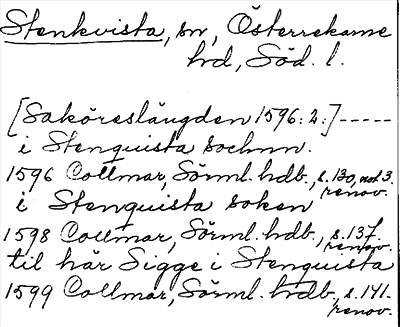 Stenkvista, sn, Österrekarne
hd, Söd. l.
[Saköreslängden 1596:2:]-----
i Stenquista sochnn.
1596 Collmar, Sörml. hdb., s. 130, not 3.
renov.
i Stenquista soken
1598 Collmar, Sörml. hdb., s. 137
renov.
til här Sigge i Stenquista
1599 Collmar, Sörml. hdb., s. 141.
renov.